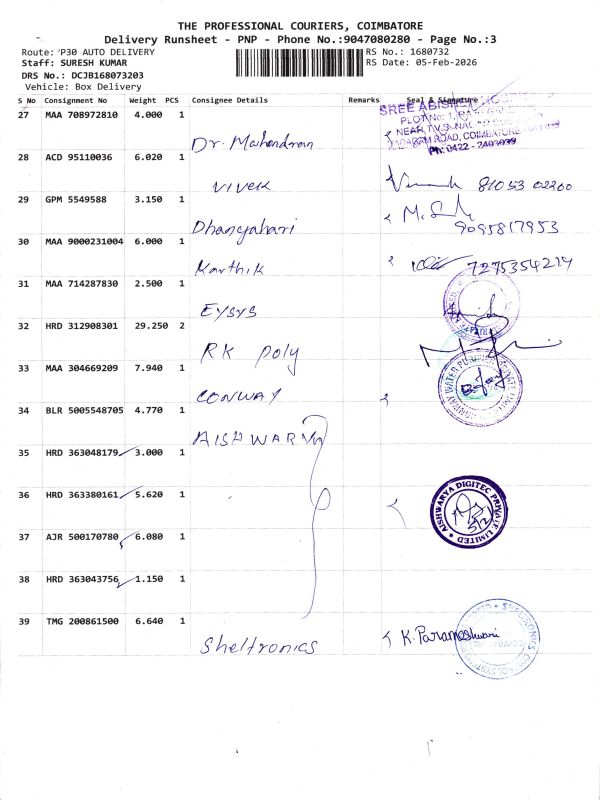 THE PROFESSIONAL COURIERS, COIMBATORE
Delivery Runsheet - PNP - Phone No.:9047080280 - Page No.:3
Route: P30 AUTO DELIVERY
RS No.: 1680732
Staff: SURESH KUMAR
RS Date: 05-Feb-2026
DRS No.: DCJB168073203
Vehicle: Box Delivery
S No Consignment No Weight PCS Consignee Details Remarks Seal & Signature
27 MAA 708972810 4.000 1
Dr. Mahendran
SREE ABISHEK
PLOT No: 1,
NEAR T.V.S.
ROAD, COIMBATORE
Ph: 0422 - 2403939
28 ACD 95110036 6.020 1
Vivek
81053 02200
29 GPM 5549588 3.150 1
Dhanyahari
9095817953
30 MAA 9000231004 6.000 1
Karthik
7275354214
31 MAA 714287830 2.500 1
EYSYS
32 HRD 312908301 29.250 2
RK poly
33 MAA 304669209 7.940 1
CONWAY
34 BLR 5005548705 4.770 1
AISHWARYA
35 HRD 363048179 3.000 1
36 HRD 363380161 5.620 1
AISHWARYA DIGITEC PRIVATE LIMITED
5/2
37 AJR 500170780 6.080 1
38 HRD 363043756 1.150 1
39 TMG 200861500 6.640 1
Sheltronics
K. Parameshwari